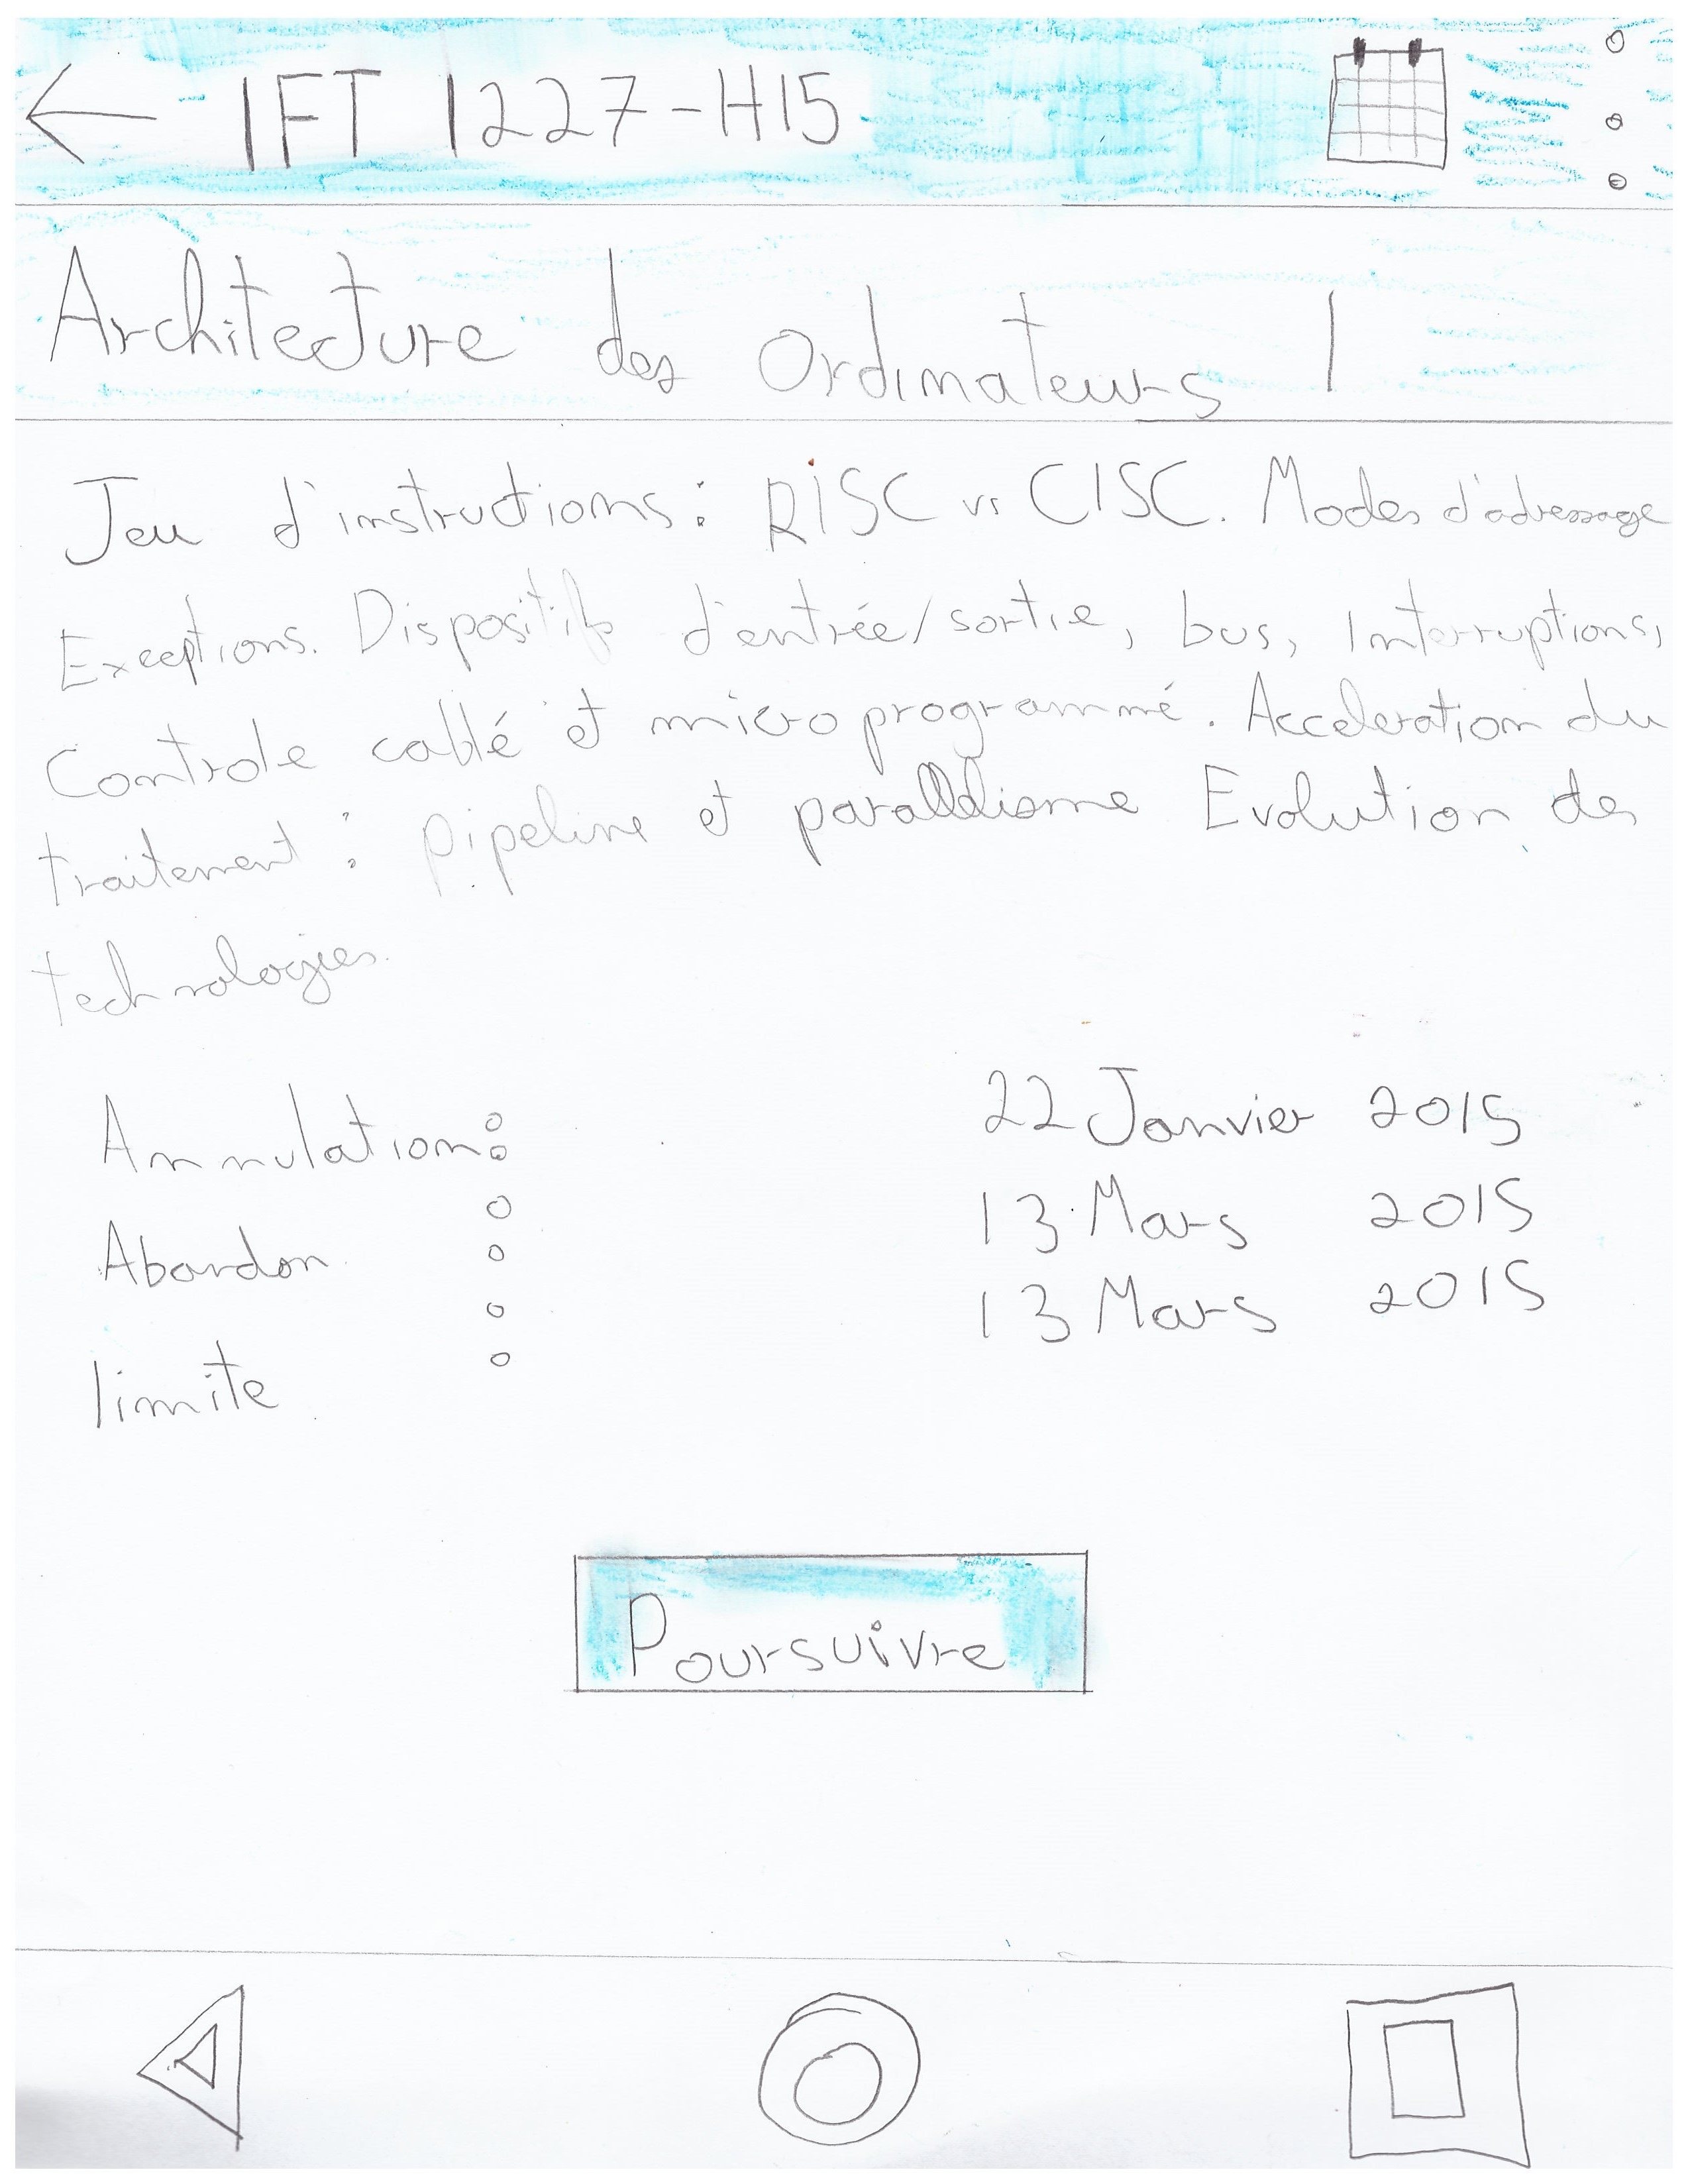 IFT 1227-H15
Architecture des Ordinateurs 1
Jeu d'instructions : RISC vs CISC. Modes d'adressage
Exceptions. Dispositifs d'entrée/sortie, bus, Interruptions,
Controle cablé et micro programmé. Acceleration du
traitement : pipeline et parallélisme Evolution des
technologies.
Annulation : 22 Janvier 2015
Abandon : 13 Mars 2015
limite : 13 Mars 2015
Poursuivre